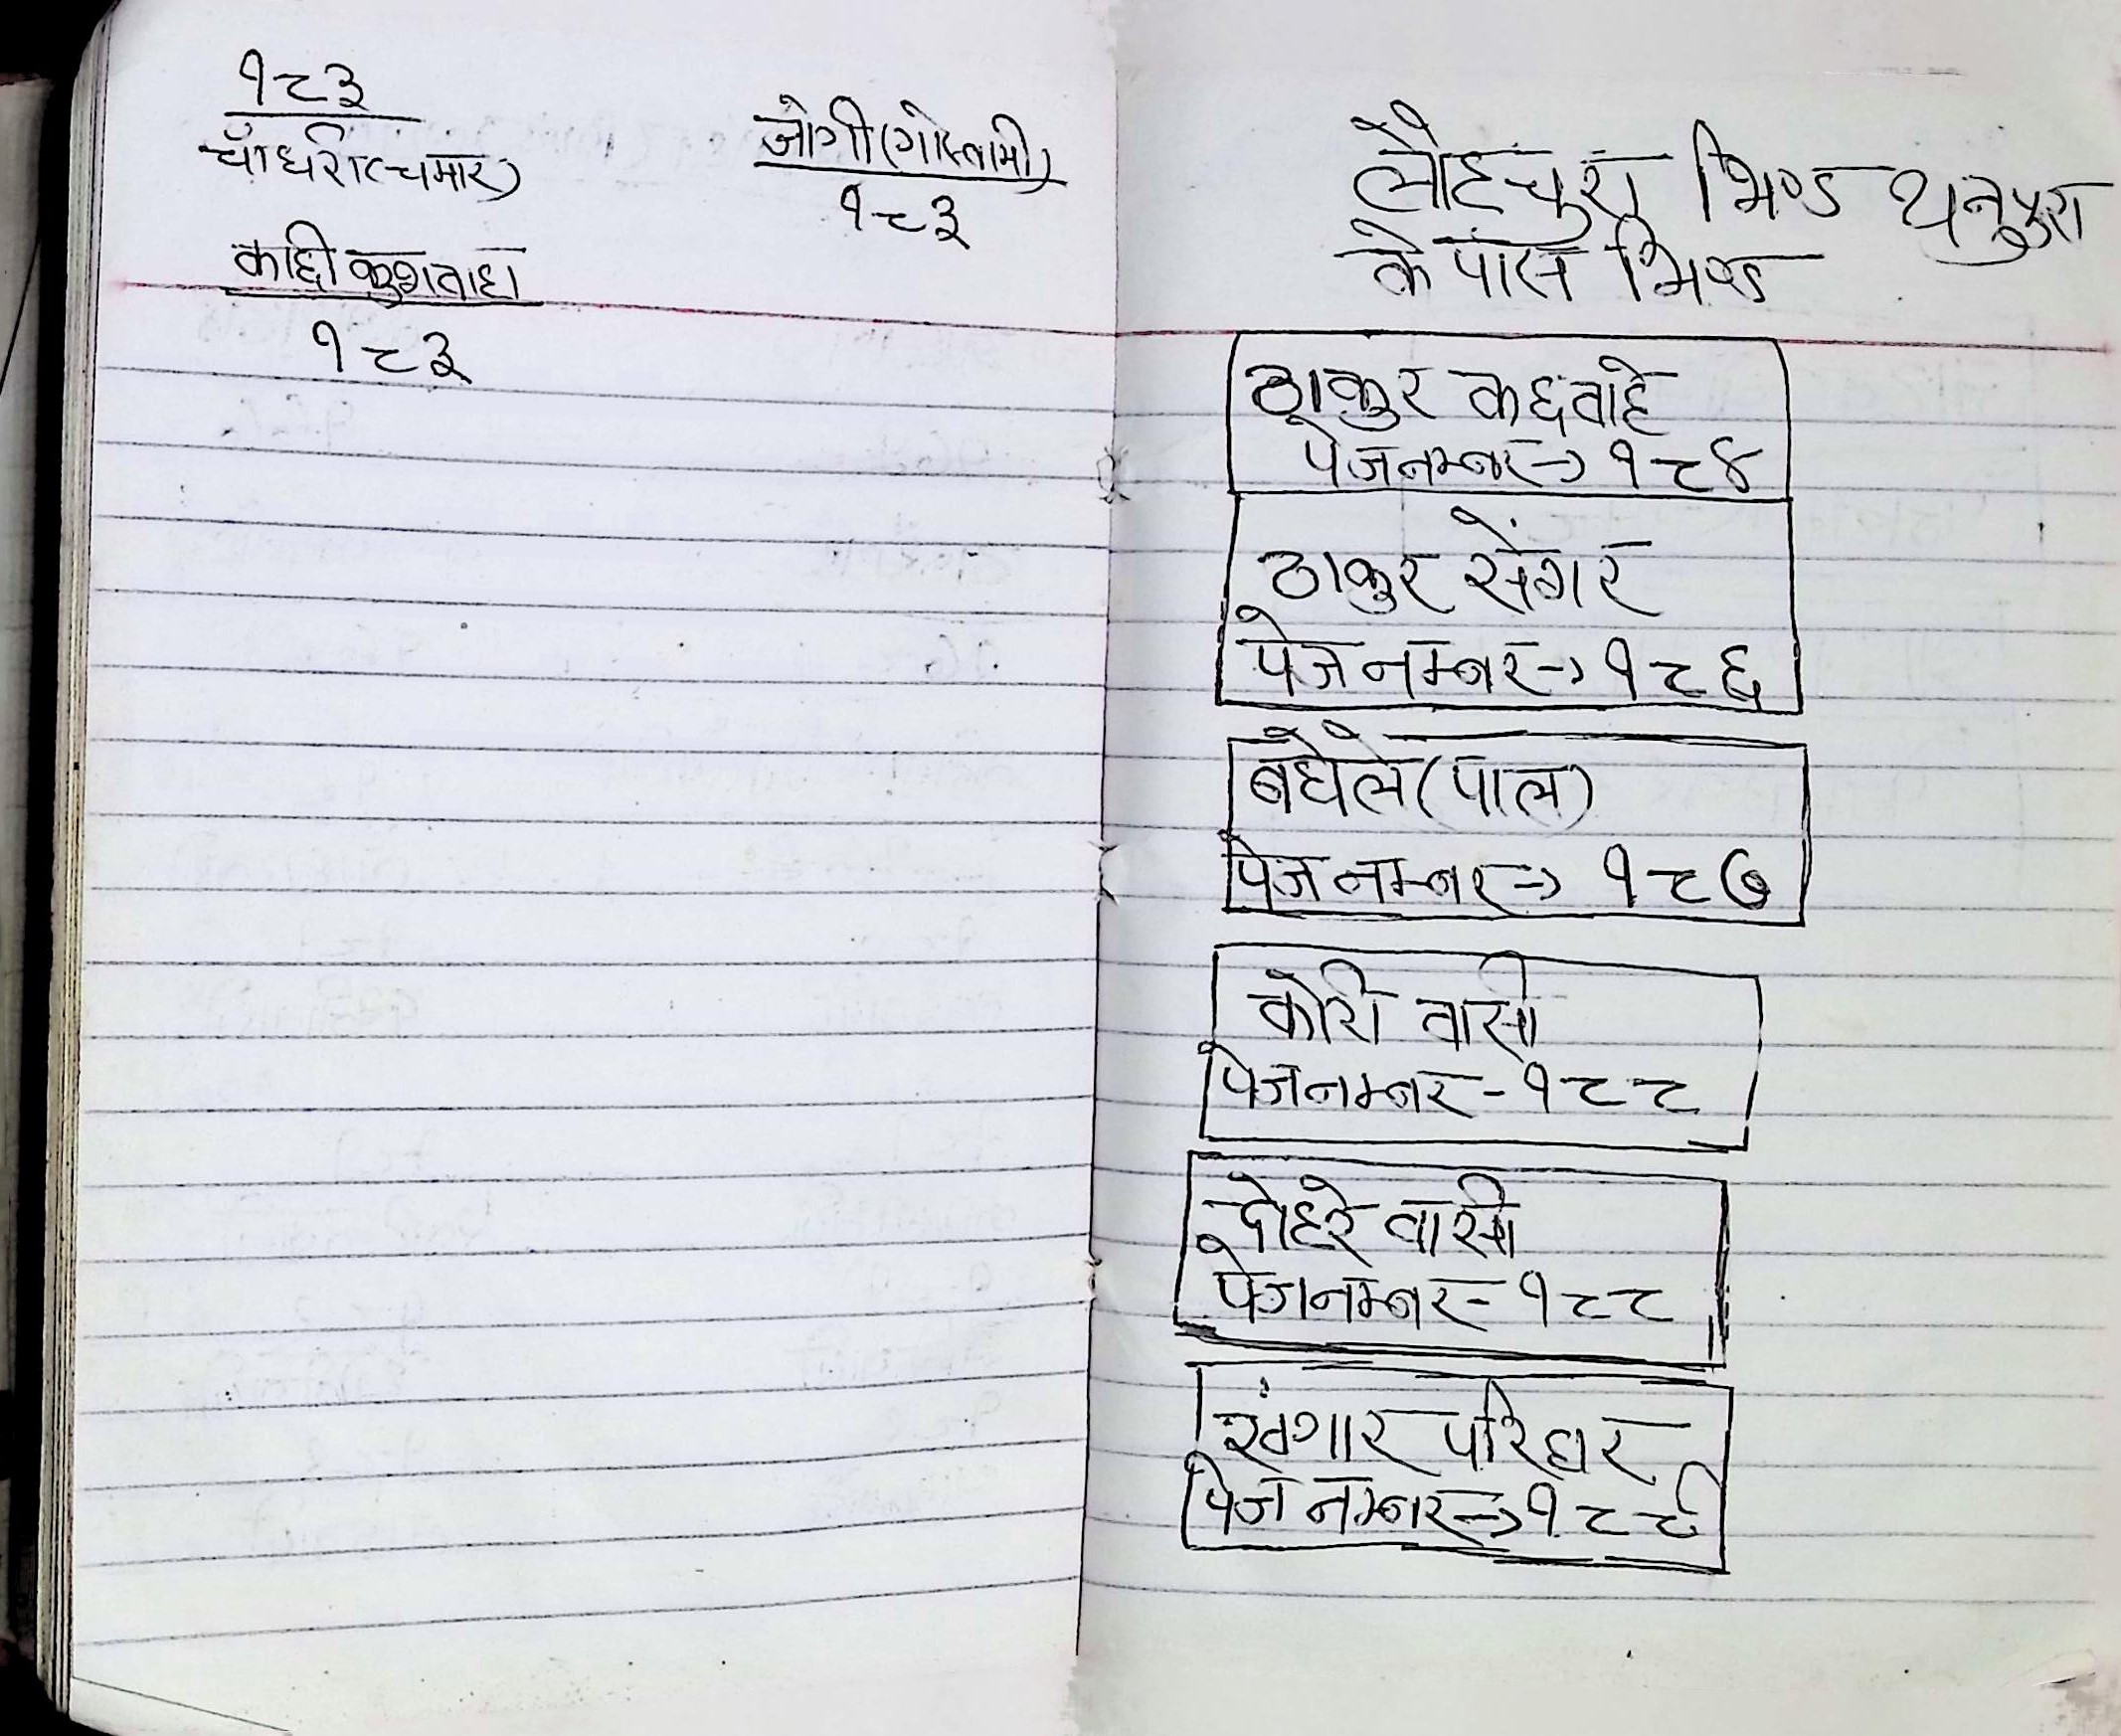 १८३
चौधरी(चमार)
काछी कुशवाहा
१८३
जोगी(गोस्वामी)
१८३
लौहचुरा भिण्ड धनुपुरा
के पास भिण्ड
ठाकुर कछवाहे
पेज नम्बर→ १८४
ठाकुर सेंगर
पेज नम्बर→ १८६
बघेले(पाल)
पेज नम्बर→ १८७
कोरी वासी
पेज नम्बर - १८८
दोहरे वासी
पेज नम्बर - १८८
खंगार परिहार
पेज नम्बर→ १८९